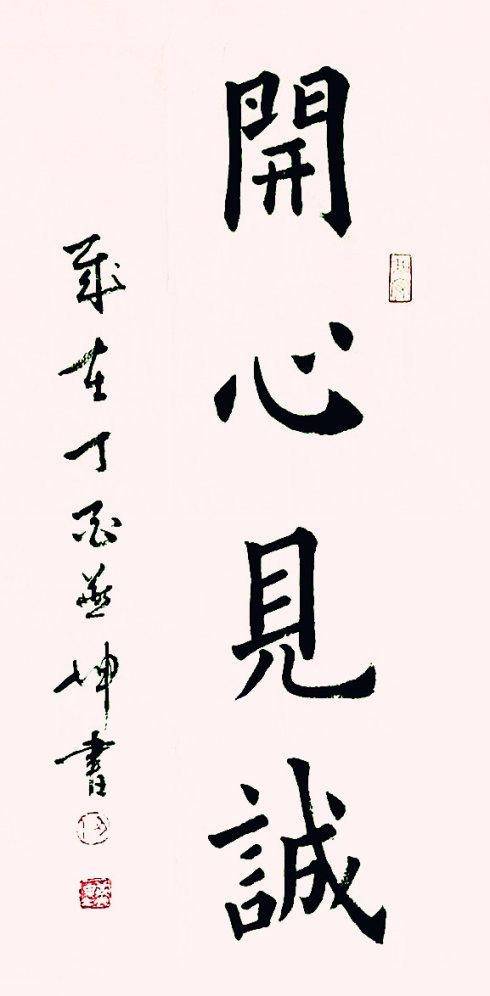 開心見誠
歲在丁酉坤書